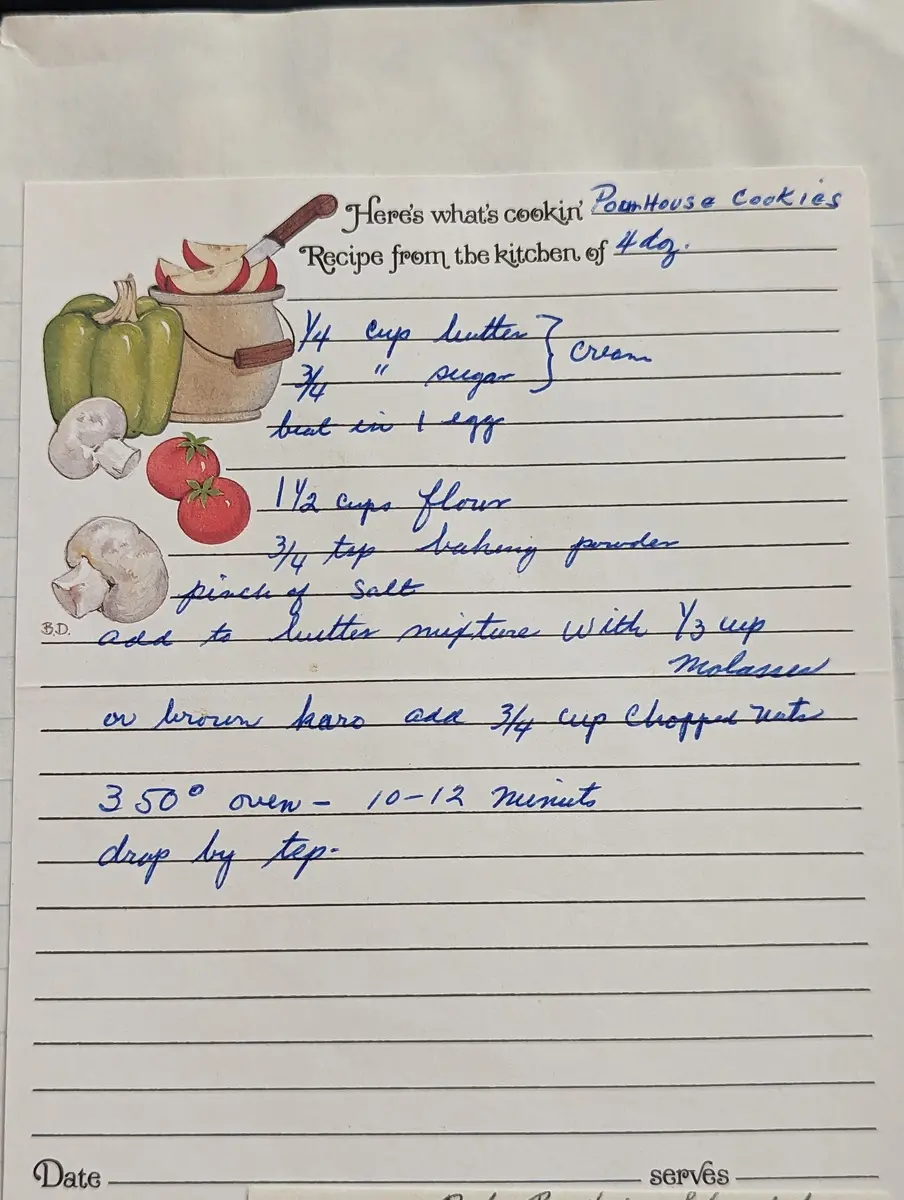 Here's what's cookin' PoorHouse Cookies
Recipe from the kitchen of 4 doz.
1/4 cup butter } Cream
3/4 " sugar
beat in 1 egg
1 1/2 cups flour
3/4 tsp baking powder
pinch of salt
add to butter mixture with 1/3 cup
Molasses
or brown karo add 3/4 cup Chopped nuts
350° oven - 10-12 minuts
drop by tsp.
B.D.
Date serves